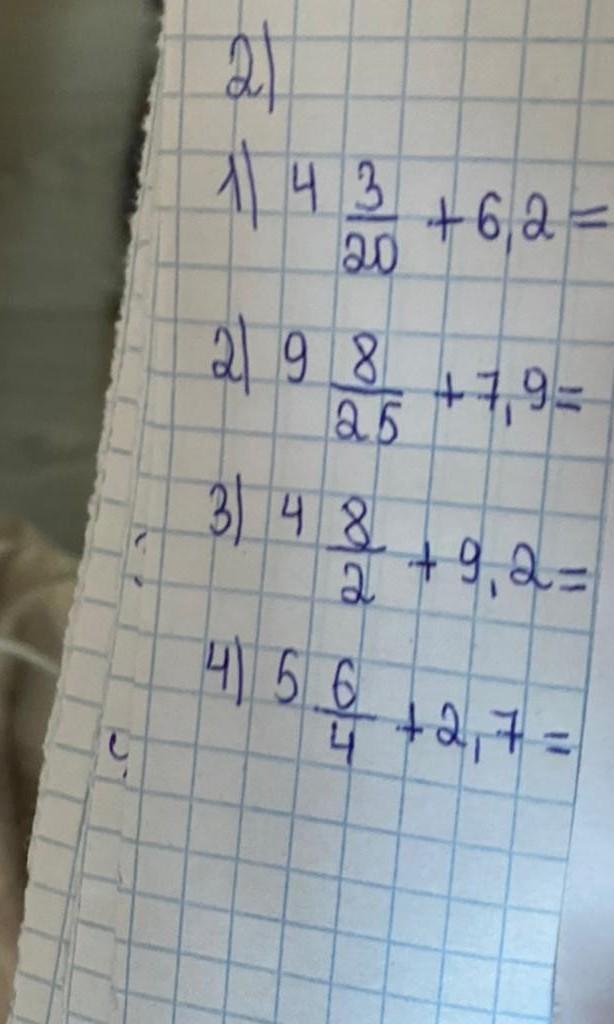 2)
1) 4 3/20 + 6,2 =
2) 9 8/25 + 7,9 =
3) 4 8/2 + 9,2 =
4) 5 6/4 + 2,7 =